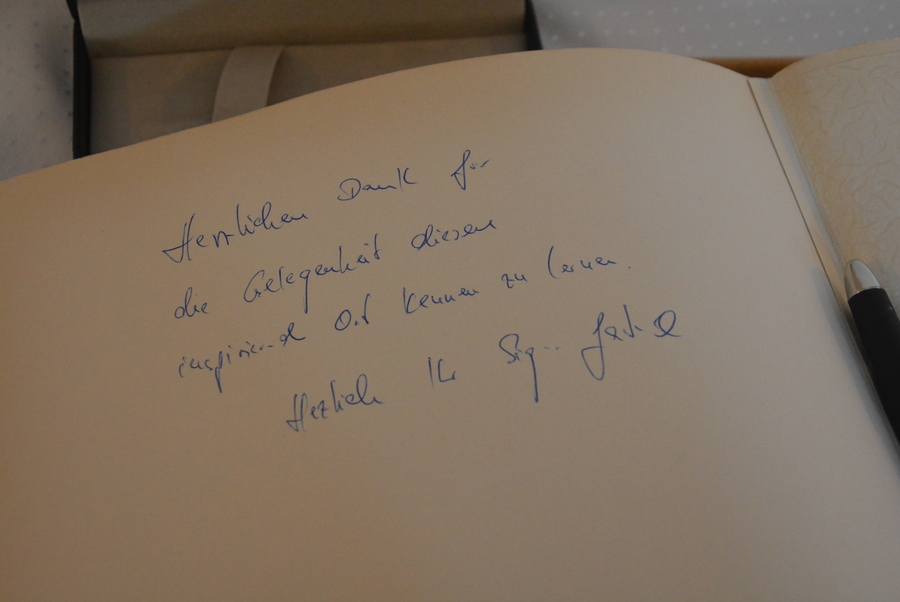 Herzlichen Dank für
die Gelegenheit diesen
inspirierend Ort kennen zu lernen.
Herzlich Ihr